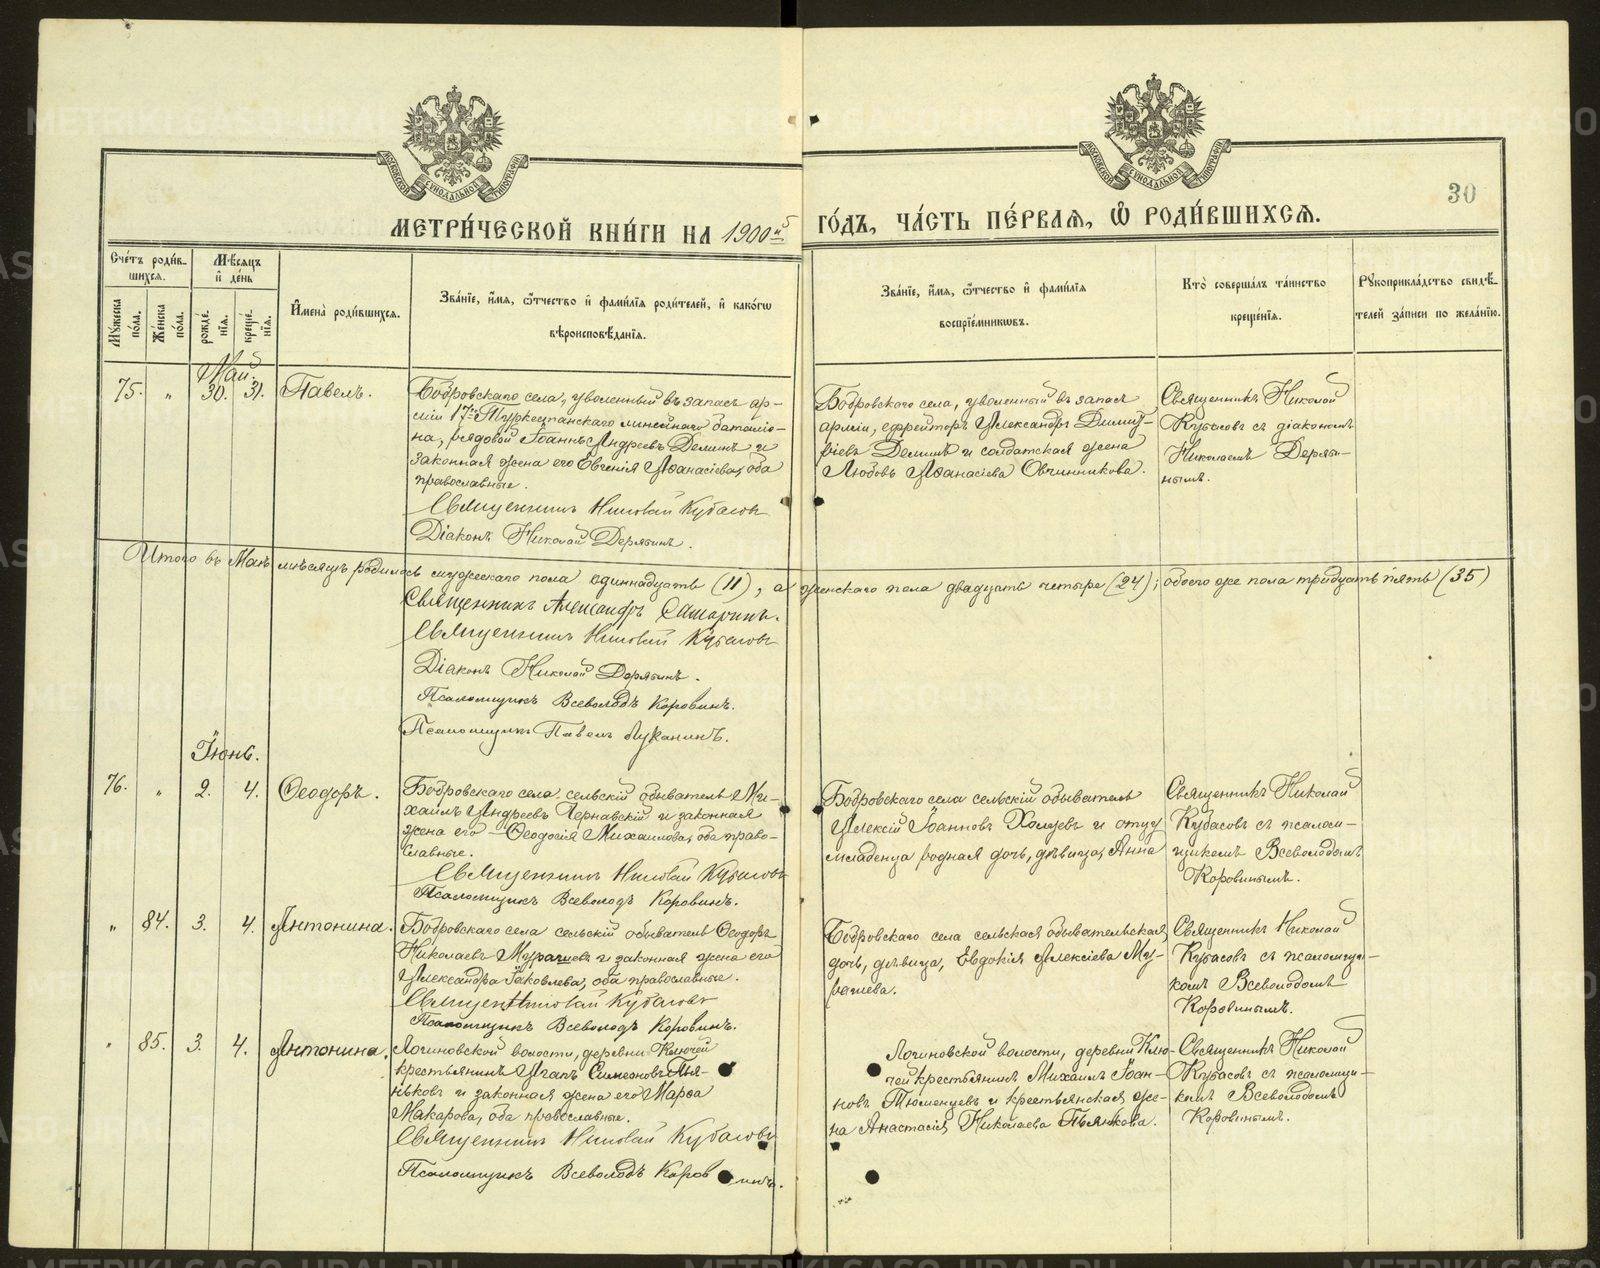 МОСКОВСКОЙ СѴНОДАЛЬНОЙ ТИПОГРАФІИ
МОСКОВСКОЙ СѴНОДАЛЬНОЙ ТИПОГРАФІИ
30
МЕТРИ́ЧЕСКОЙ КНИ́ГИ НА 1900й ГО́ДЪ, ЧА́СТЬ ПЕ́РВАЯ, Ѡ҆ РОДИ́ВШИХСЯ.
Сче́тъ роди́в-
шихся.
Мꙋ́жеска по́ла.
Же́нска по́ла.
Мѣ́сяцъ
и҆ де́нь
рожде́нїя.
креще́нїя.
И҆мена̀ роди́вшихся.
Зва́нїе, и҆́мя, ѻ҆́тчество и҆ фами́лїя роди́телей, и҆ како́гѡ
вѣроисповѣ́данїя.
Зва́нїе, и҆́мя, ѻ҆́тчество и҆ фами́лїя
воспрїе́мникѡвъ.
Кто̀ соверша́лъ та́инство
креще́нїя.
Рꙋкоприкла́дство свидѣ́-
телей за́писи по жела́нїю.
Май.
75. „ 30. 31. Павелъ.
Бобровскаго села, уволенный въ запасъ ар-
міи 17го Туркестанскаго линейнаго баталіо-
на, рядовой Іоаннъ Андреевъ Деминъ и
законная жена его Евгенія Аѳанасіева, оба
православные.
Священникъ Николай Кубасовъ
Діаконъ Николай Дерябинъ.
Бобровскаго села, уволенный въ запасъ
арміи, ефрейторъ Александръ Димит-
ріевъ Деминъ и солдатская жена
Любовь Аѳанасіева Овчинникова.
Священникъ Николай
Кубасовъ съ діакономъ
Николаемъ Деряби-
нымъ.
Итого въ Маѣ мѣсяцѣ родилось мужескаго пола одиннадцать (11), а женскаго пола двадцать четыре (24); обоего же пола тридцать пять (35)
Священникъ Александръ
Священникъ Николай Кубасовъ
Діаконъ Николай Дерябинъ.
Псаломщикъ Всеволодъ Коровинъ.
Псаломщикъ Павелъ Луканинъ.
Іюнь.
76. „ 2. 4. Ѳеодоръ.
Бобровскаго села сельскій обыватель Ми-
хаилъ Андреевъ Чернавскій и законная
жена его Ѳеодосія Михаилова, оба право-
славные.
Священникъ Николай Кубасовъ
Псаломщикъ Всеволодъ Коровинъ.
Бобровскаго села сельскій обыватель
Алексій Іоанновъ и отцу
младенца родная дочь, дѣвица, Анна
Священникъ Николай
Кубасовъ съ псалом-
щикомъ Всеволодомъ
Коровинымъ.
„ 84. 3. 4. Антонина.
Бобровскаго села сельскій обыватель Ѳеодоръ
Николаевъ Мурашевъ и законная жена его
Александра Іаковлева, оба православные.
Священникъ Николай Кубасовъ
Псаломщикъ Всеволодъ Коровинъ.
Бобровскаго села сельская обывательская
дочь, дѣвица, Евдокія Алексіева Му-
рашева.
Священникъ Николай
Кубасовъ съ псаломщи-
комъ Всеволодомъ
Коровинымъ.
„ 85. 3. 4. Антонина.
Логиновской волости, деревни Ключей
крестьянинъ Агапъ Симеоновъ Пья-
нковъ и законная жена его Марѳа
Макарова, оба православные.
Священникъ Николай Кубасовъ
Псаломщикъ Всеволодъ Коровинъ.
Логиновской волости, деревни Клю-
чей крестьянинъ Михаилъ Іоан-
новъ Тюменцевъ и крестьянская же-
на Анастасія Николаева Пьянкова.
Священникъ Николай
Кубасовъ съ псаломщи-
комъ Всеволодомъ
Коровинымъ.
METRIKI.GASO-URAL.RU